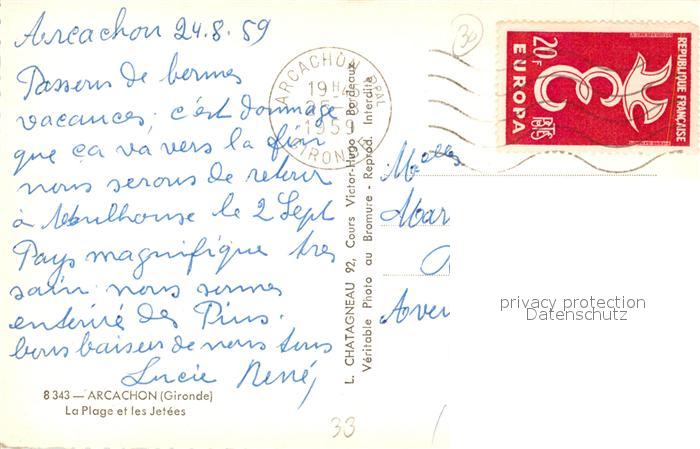 Arcachon 24.8.59
Passons de bonnes
vacances, c'est dommage
que ça va vers la fin
nous serons de retour
à Mulhouse le 2 Sept
Pays magnifique très
sain nous sommes
entouré des Pins.
bons baisers de nous tous
Lucie René
8 343 — ARCACHON (Gironde)
La Plage et les Jetées
33
L. CHATAGNEAU 92, Cours Victor-Hugo Bordeaux
Véritable Photo au Bromure - Reprod. Interdite
30
ARCACHON PAL
19H
1959
GIRONDE
REPUBLIQUE FRANÇAISE
20F
EUROPA
POSTES
Melles
Mar
Aven
privacy protection
Datenschutz